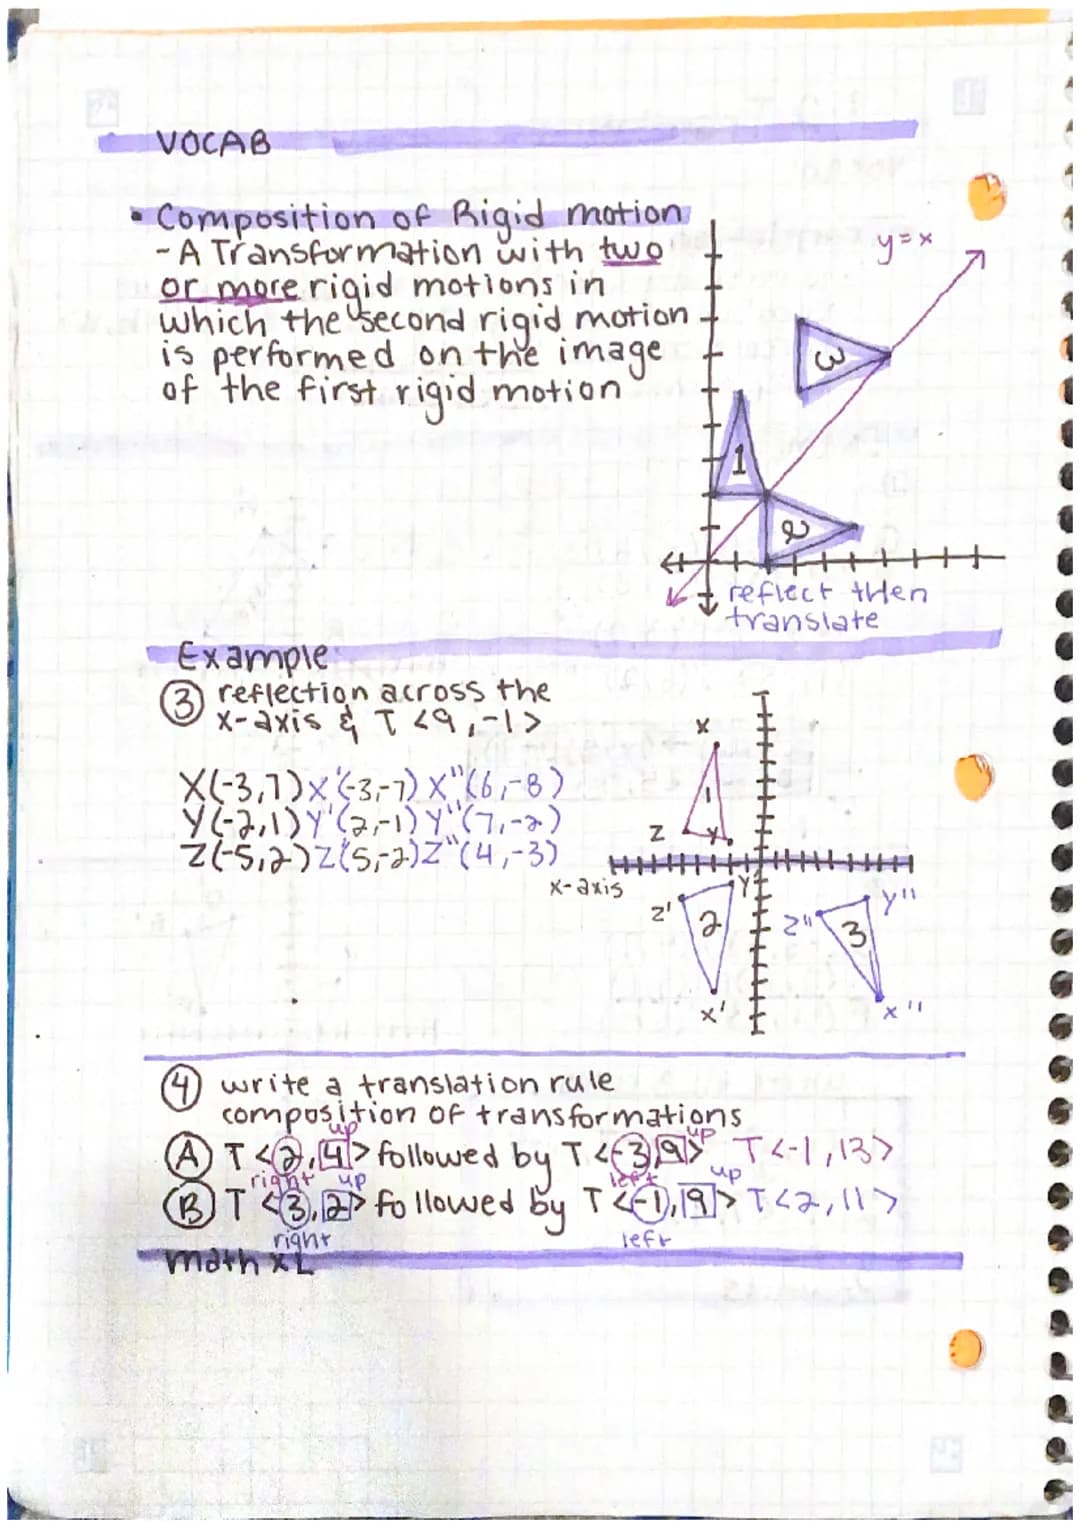 VOCAB
• Composition of Rigid motion
- A Transformation with two
or more rigid motions in
which the second rigid motion
is performed on the image
of the first rigid motion
y=x
3
1
2
reflect then
translate
Example
③ reflection across the
x-axis & T <9,-1>
X(-3,7) X'(-3,-7) X"(6,-8)
Y(-2,1) Y'(2,-1) Y"(7,-2)
Z(-5,2) Z'(5,-2) Z"(4,-3)
X
1
Z
Y
x-axis
Z'
2
Y'
X'
Z"
3
Y"
X"
④ write a translation rule
composition of transformations
up up
Ⓐ T <2,4> followed by T <-3,9> T<-1,13>
right up left up
Ⓑ T <3,2> followed by T <-1,9> T<2,11>
right left
math XL